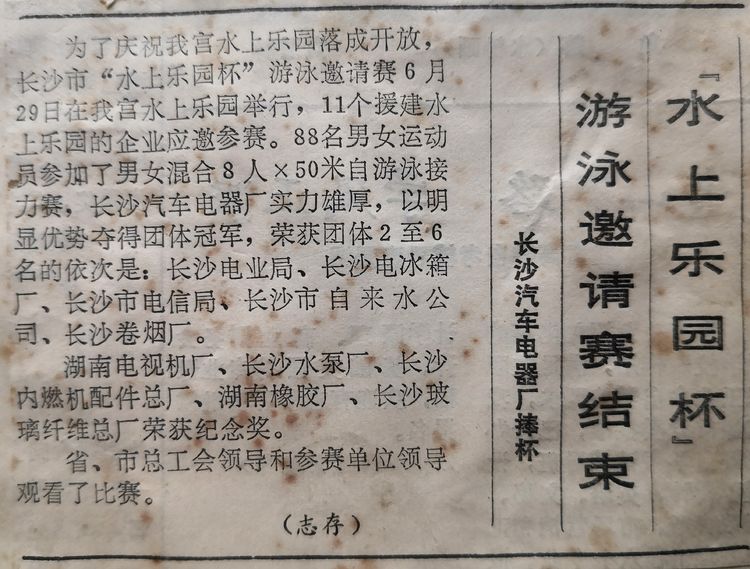 『水上乐园杯』
游泳邀请赛结束
长沙汽车电器厂捧杯
为了庆祝我宫水上乐园落成开放，
长沙市“水上乐园杯”游泳邀请赛6月
29日在我宫水上乐园举行，11个援建水
上乐园的企业应邀参赛。88名男女运动
员参加了男女混合8人×50米自游泳接
力赛，长沙汽车电器厂实力雄厚，以明
显优势夺得团体冠军，荣获团体2至6
名的依次是：长沙电业局、长沙电冰箱
厂、长沙市电信局、长沙市自来水公
司、长沙卷烟厂。
湖南电视机厂、长沙水泵厂、长沙
内燃机配件总厂、湖南橡胶厂、长沙玻
璃纤维总厂荣获纪念奖。
省、市总工会领导和参赛单位领导
观看了比赛。
（志存）